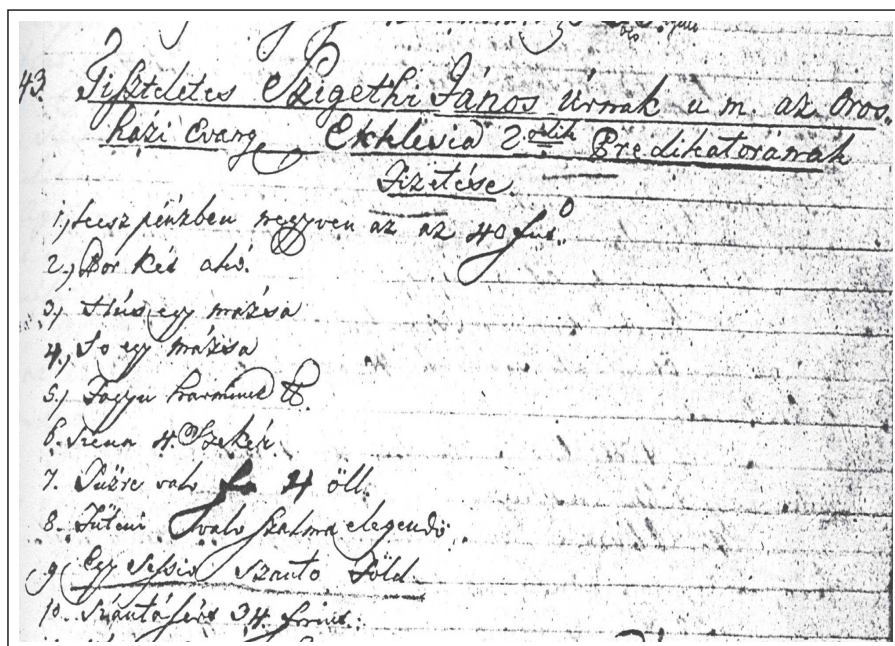 43. Tiszteletes Szigethi János Úrnak u. m. az Oros-
házi Evang. Ekklesia 2dik Predikátorának
Fizetése
1, kész pénzben negyven az az 40 for.
2., Bor két akó.
3, Hús egy mázsa
4., So egy mázsa
5., Fagyu harmincz ℔.
6. Széna 4. Szekér.
7. Tüzre való fa 4 öll.
8. Fűteni való szalma elegendő.
9. Egy Sessio Szanto Föld.
10. Szántásért 34. forint.